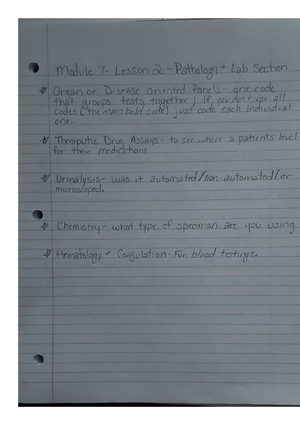 Module 7- Lesson 2 - Pathology + Lab Section
Organ or Disease Oriented Panels- one code
that groups tests together; If you don't use all
codes (the main bold code) just code each individual
one.
Theraputic Drug Assays- to see where a patients level
for their medications
Urinalysis- was it automated/non-automated/or
microscoped.
Chemistry- what type of specimen are you using
Hematology + Coagulation- For blood testings.